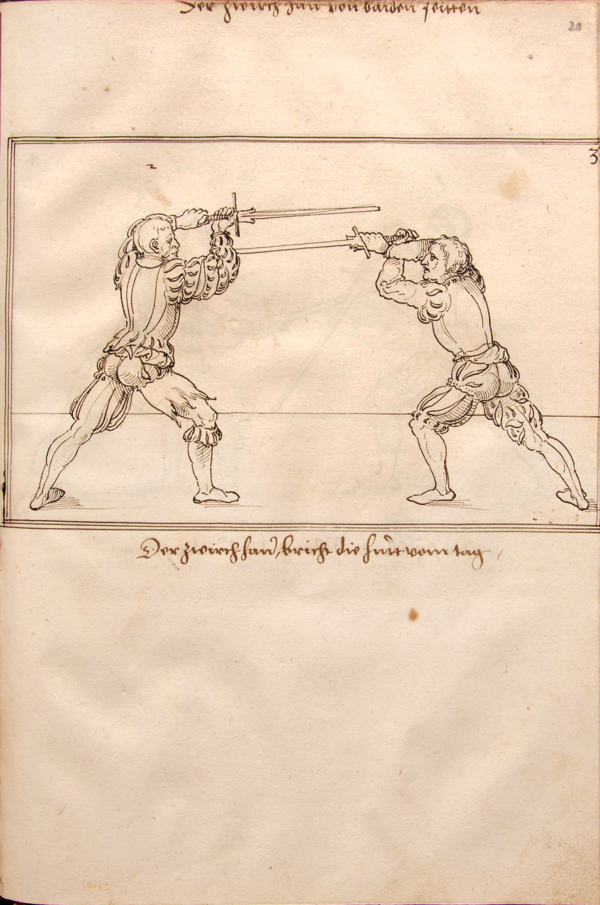 Der zwirch hau von baiden seitten
20
3
Der zwirch hau, bricht die hüt vom tag,